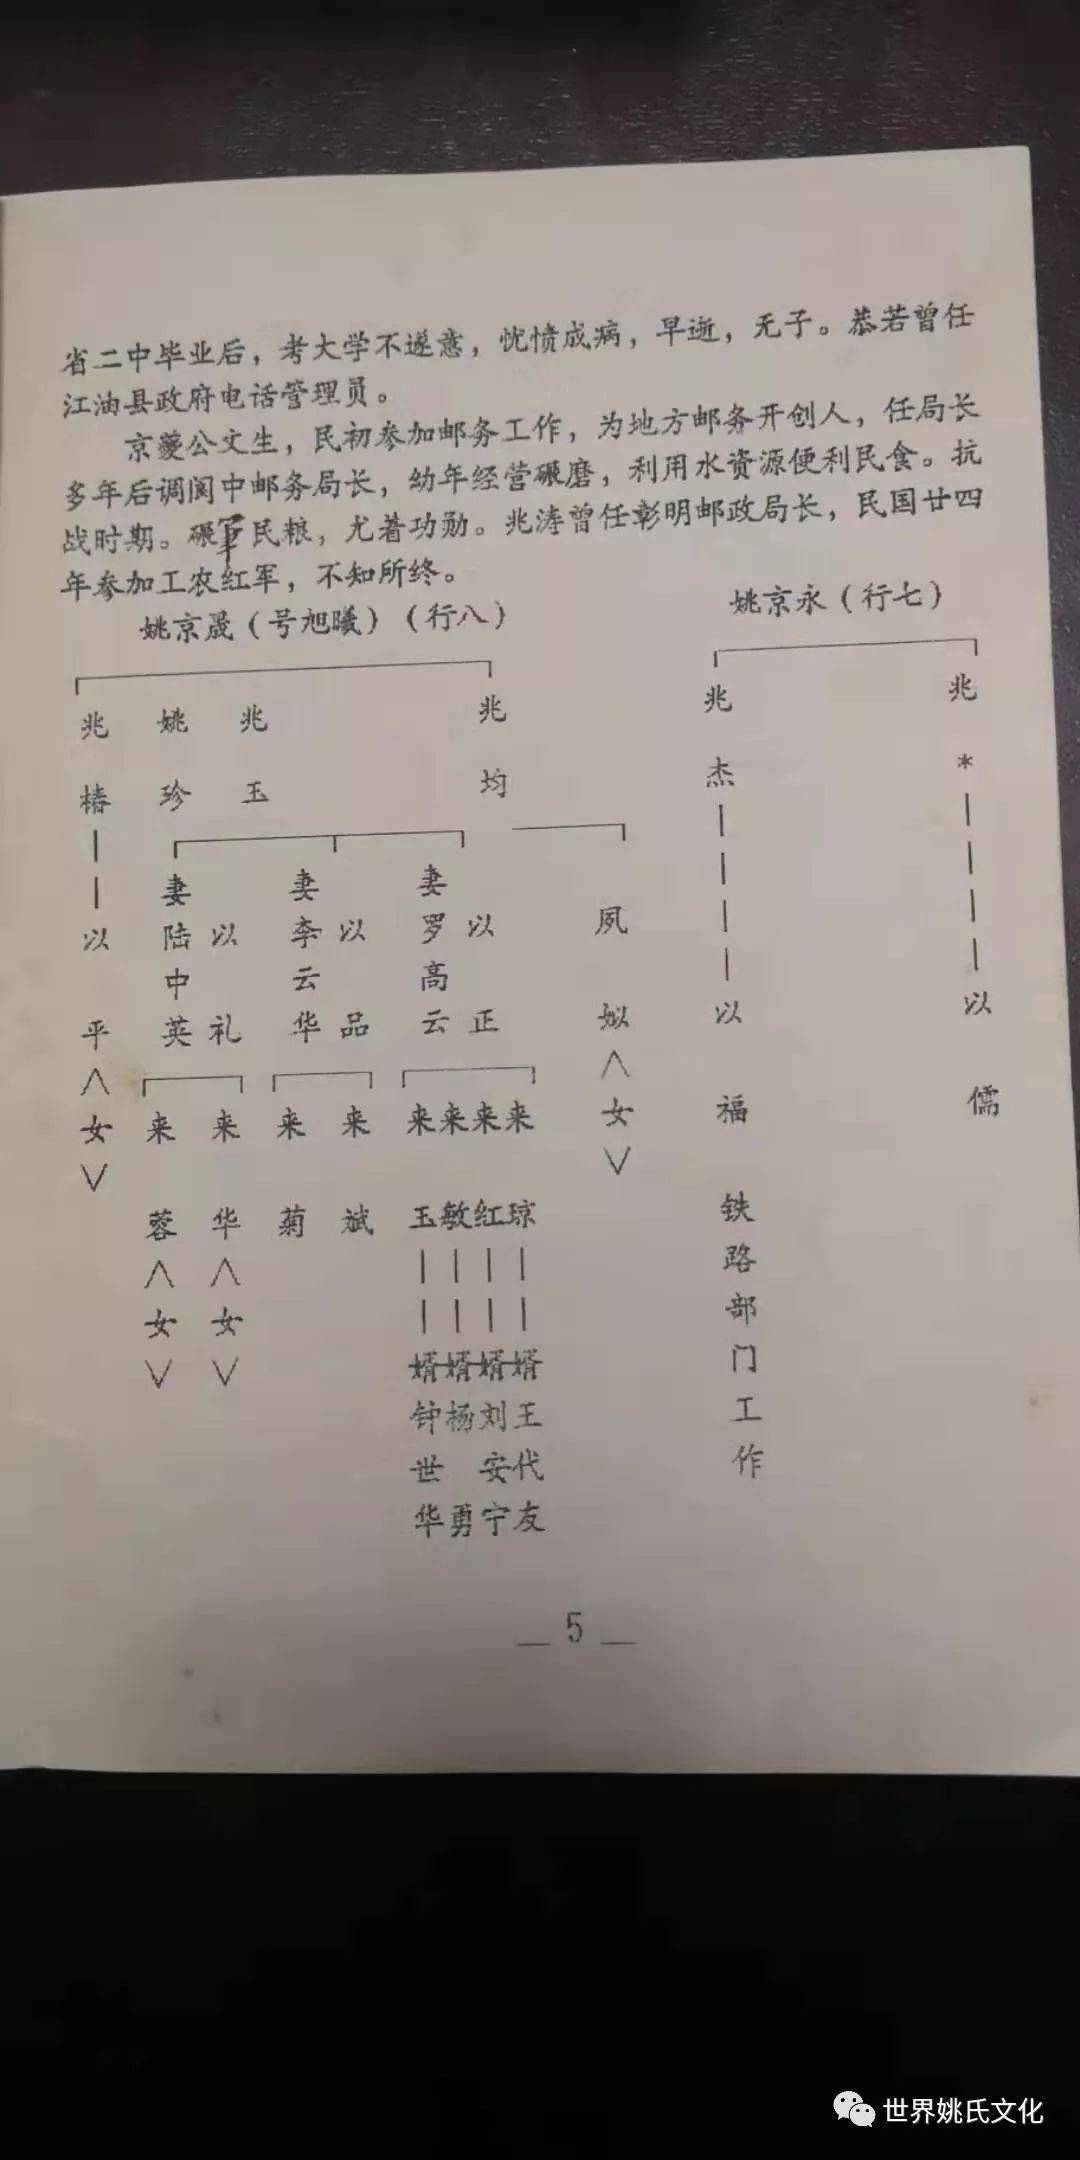 省二中毕业后，考大学不遂意，忧愤成病，早逝，无子。恭若曾任
江油县政府电话管理员。
京夔公文生，民初参加邮务工作，为地方邮务开创人，任局长
多年后调阆中邮务局长，幼年经营碾磨，利用水资源便利民食。抗
战时期。碾軍民粮，尤着功勋。兆涛曾任彰明邮政局长，民国廿四
年参加工农红军，不知所终。
姚京晟（号旭曦）（行八） 姚京永（行七）
兆 姚 兆 兆 兆 兆
椿 珍 玉 均 杰 *
妻 妻 妻
以 陆 以 李 以 罗 以 夙
中 云 高
平 英 礼 华 品 云 正 姒 以 以
女 来 来 来 来 来来来来 女 福 儒
蓉 华 菊 斌 玉敏红琼 铁
路
女 女 部
婿婿婿婿 门
钟杨刘王 工
世 安代 作
华勇宁友
— 5 —
世界姚氏文化